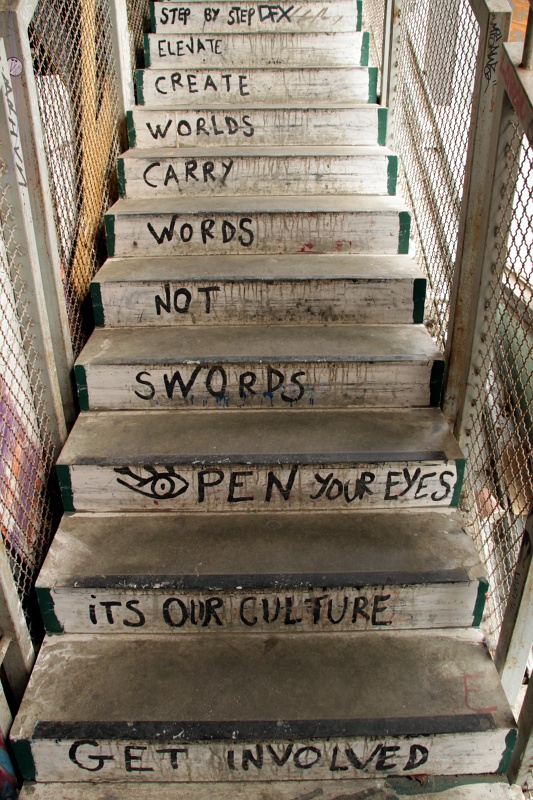 STEP BY STEP DFX
ELEVATE
CREATE
WORLDS
CARRY
WORDS
NOT
SWORDS
OPEN YOUR EYES
iTS OUR CULTURE
E
GET INVOLVED